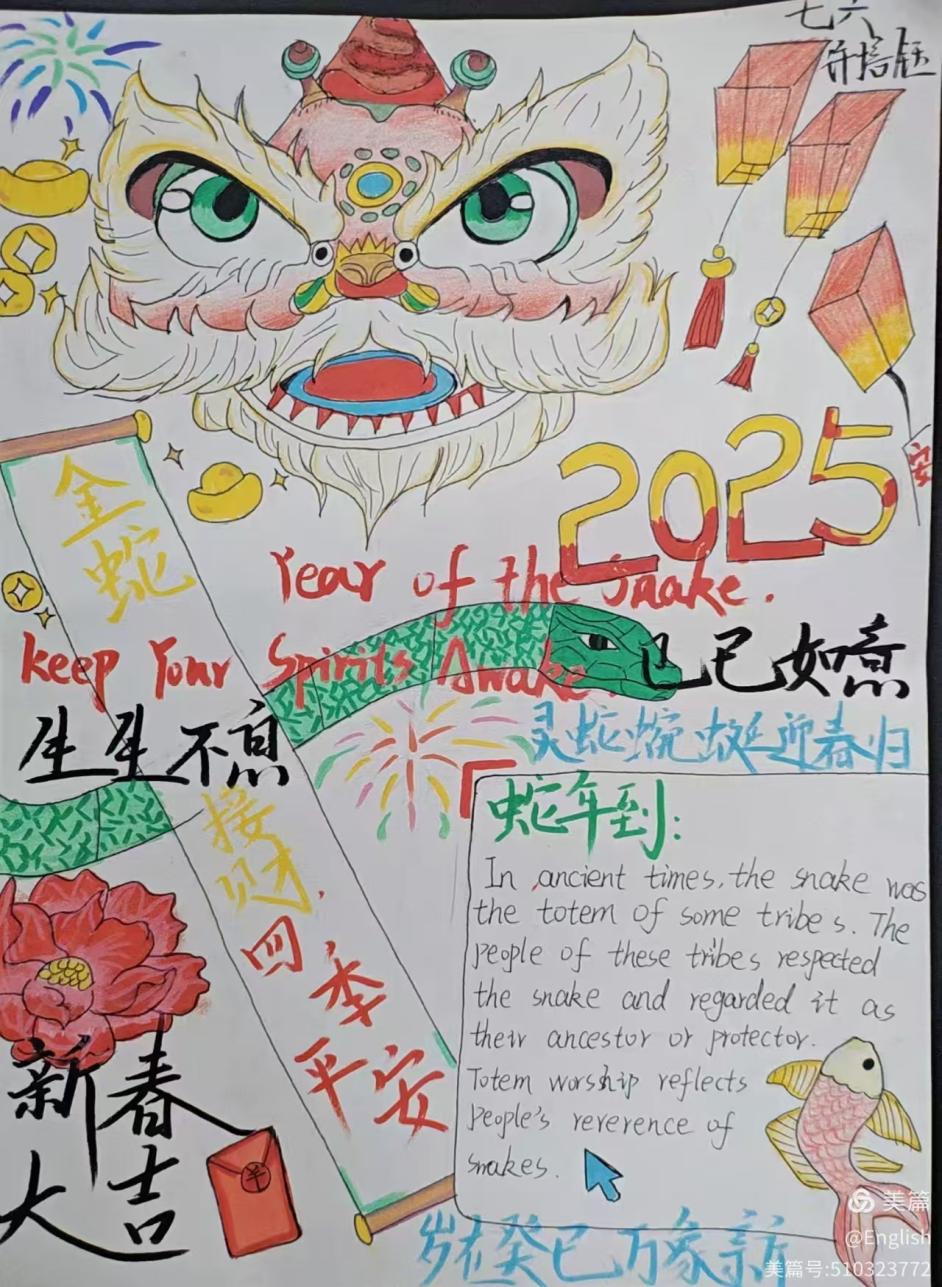 七六
2025
安
金蛇
Year of the Snake.
Keep Your Spirits Awake.
巳巳如意
生生不息
灵蛇蜿蜒迎春归
接财
四季平安
蛇年到:
In ancient times, the snake was
the totem of some tribes. The
people of these tribes respected
the snake and regarded it as
their ancestor or protector.
Totem worship reflects
people's reverence of
snakes.
新春
大吉
岁在癸巳万象新
美篇
@English
美篇号:510323772